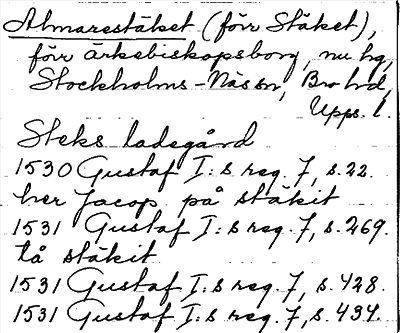 Almarestäket (förr Stäket),
förr ärkebiskopsborg, nu hg,
Stockholms-Näs sn, Bro hd,
Upps. l.
Steks ladegård
1530 Gustaf I:s reg. 7, s. 22.
her Jacop på stäkit
1531 Gustaf I:s reg. 7, s. 269.
tå stäkit
1531 Gustaf I:s reg. 7, s. 428.
1531 Gustaf I:s reg. 7, s. 434.